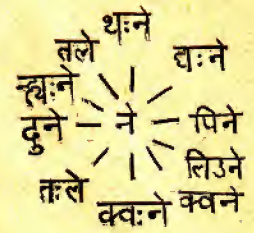 थःने
तले
द्यःने
न्ह्यःने
दुने
ने
पिने
लिउने
तःले
क्वःने
क्वने